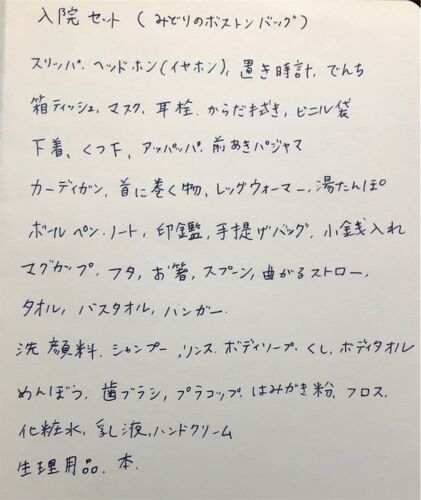 入院セット (みどりのボストンバッグ)
スリッパ. ヘッドホン(イヤホン), 置き時計, でんち
箱ティッシュ, マスク, 耳栓. からだ拭き, ビニル袋
下着, くつ下, アッパッパ. 前あきパジャマ
カーディガン, 首に巻く物, レッグウォーマー, 湯たんぽ
ボールペン. ノート, 印鑑, 手提げバッグ, 小銭入れ
マグカップ, フタ, お箸, スプーン, 曲がるストロー,
タオル, バスタオル, ハンガー.
洗顔料. シャンプー, リンス. ボディソープ. くし, ボディタオル
めんぼう, 歯ブラシ, プラコップ. はみがき粉, フロス.
化粧水, 乳液, ハンドクリーム
生理用品, 本.